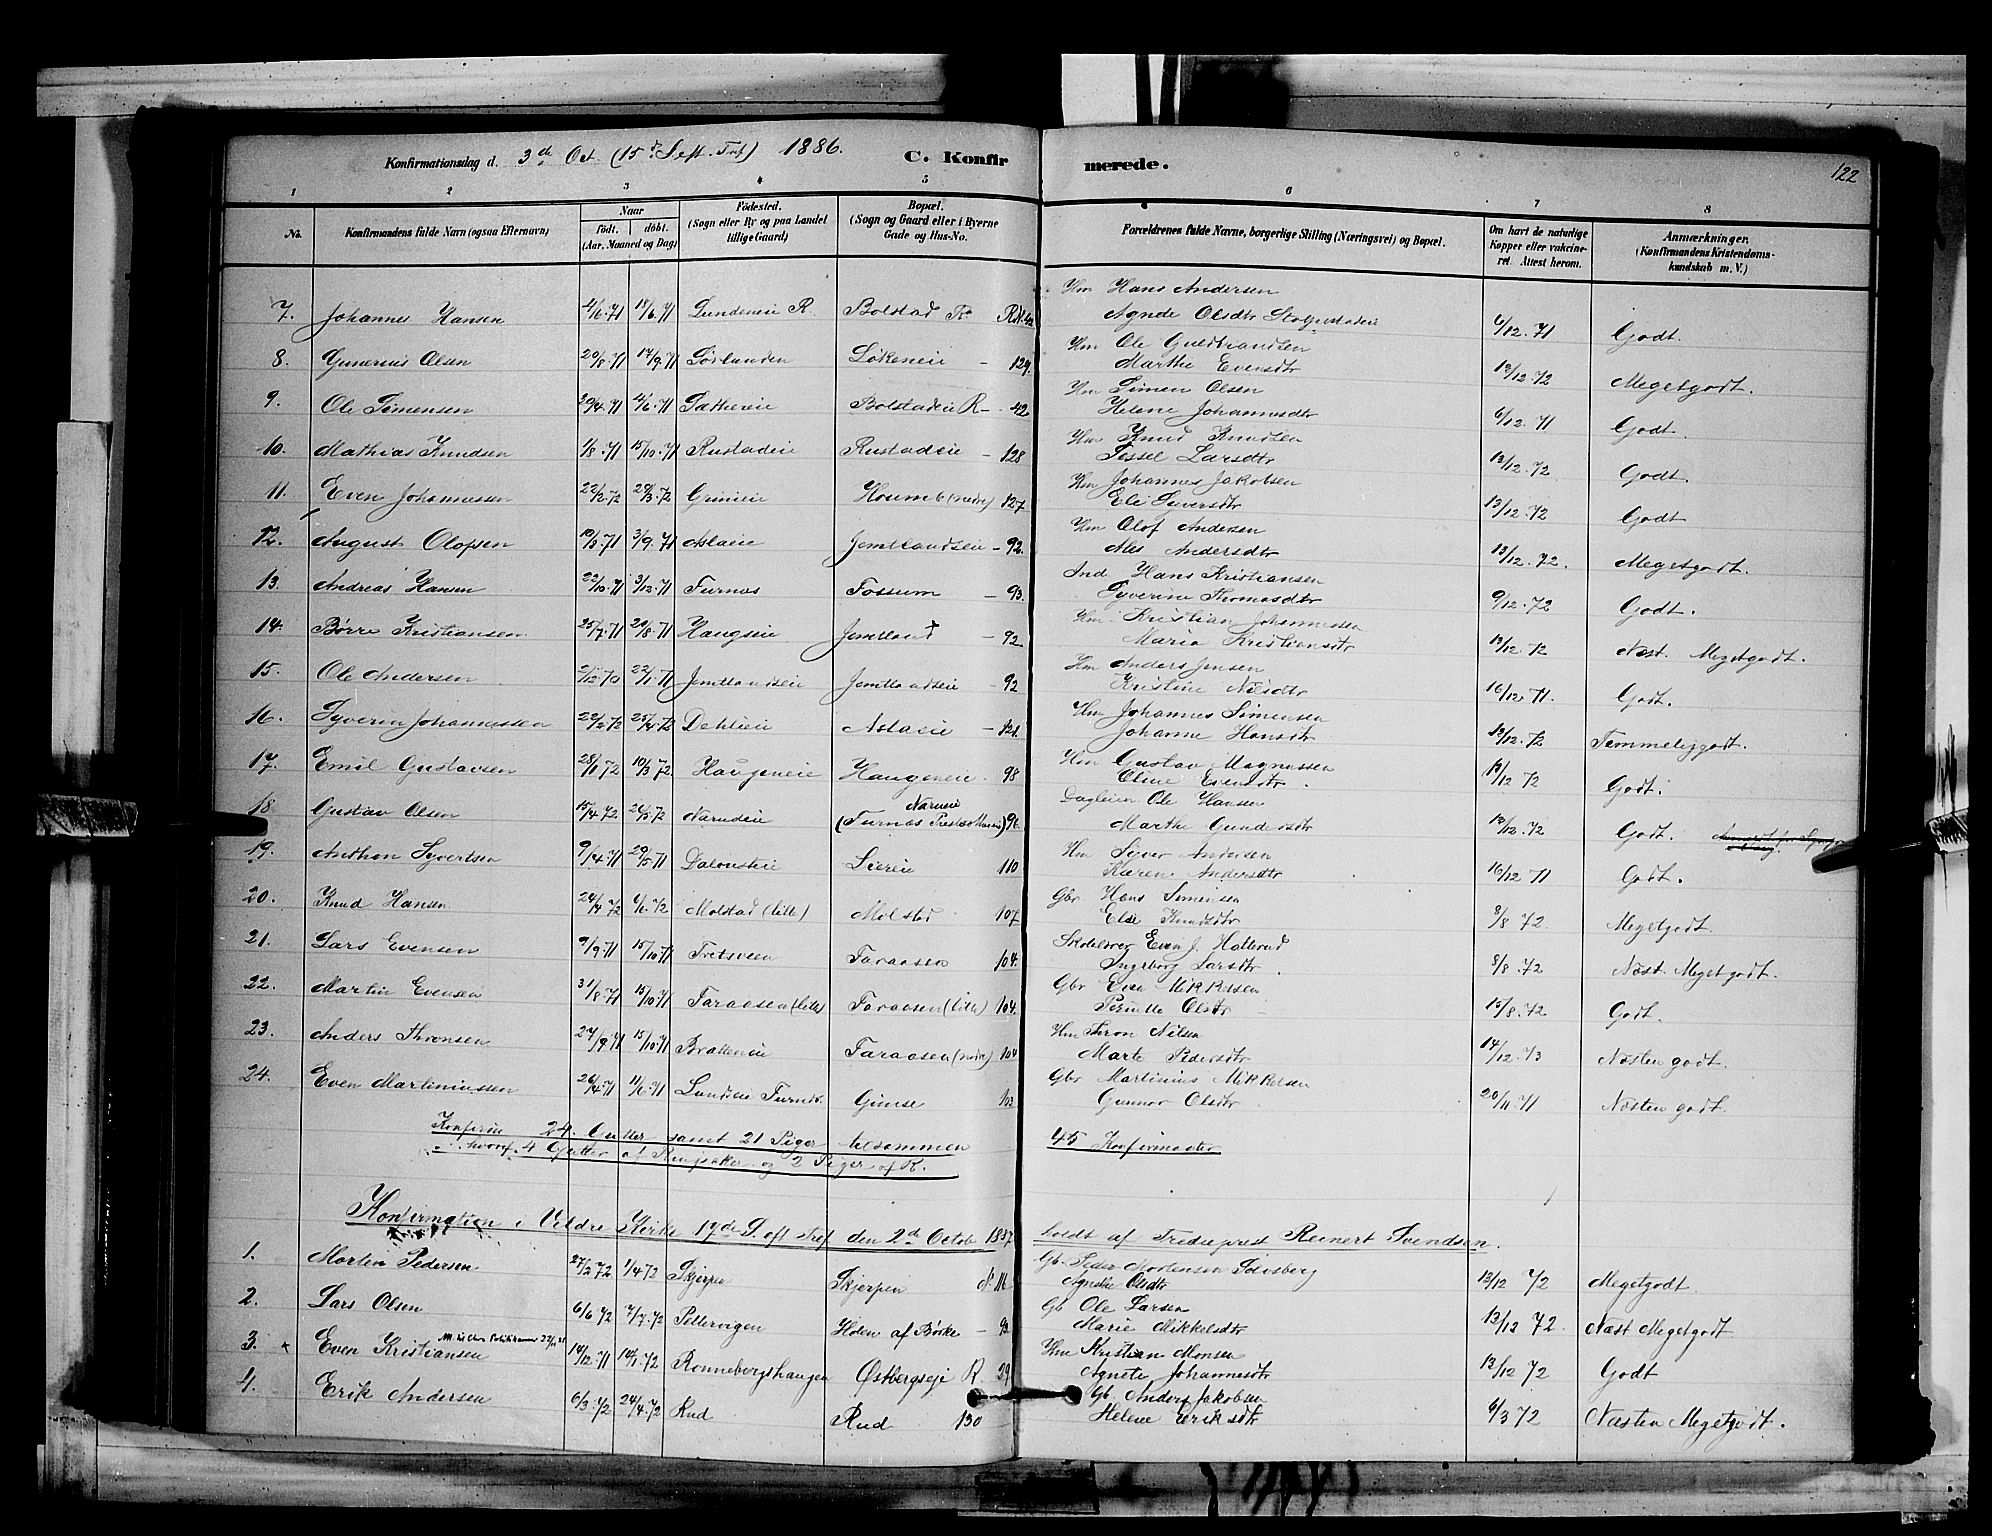 Konfirmationsdag d. 3de Oct. (15de S. eft. Tref) 1886. C. Konfir merede. 122
1 2 3 4 5 6 7 8
No. Konfirmandens fulde Navn (ogsaa Efternavn) Naar födt. döbt. (Aar, Maaned og Dag) Födested. (Sogn eller By og paa Landet tillige Gaard) Bopæl. (Sogn og Gaard eller i Byerne Gade og Hus-No. Forældrenes fulde Navne, borgerlige Stilling (Næringsvei) og Bopæl. Om havt de naturlige Kopper eller vakcineret. Attest herom. Anmærkninger. (Konfirmandens Kristendomskundskab m. V.)
7. Johannes Hansen 4/6.71 18/6.71 Lundeneie R. Bolstad R. 42 Hm Hans Andersen
Agnde Olsdtr 6/12.71 Godt.
8. Gunerius Olsen 20/8.71 17/9.71 Sørlunden Løkeneie - 129. Hm Ole Guldbrandsen
Marthe Evensdtr 12/12.72 Megetgodt.
9. Ole Simensen 30/4.71 4/6.71 Sæthereie Bolstadeie R - 42 Hm Simen Olsen
Helene Johannesdtr 6/12.71 Godt.
10. Mathias Knudsen 1/8.71 15/10.71 Rustadeie Rustadeie - 128 Hm Knud Knudsen
Sessel Larsdtr 12/12.72 Godt.
11. Even Johannessen 22/2.72 29/3.72 Grimeie (nedre) 127 Hm Johannes Jakobsen
Eli Syversdtr 12/12.72 Godt
12. August Olofsen 10/3.71 3/9.71 Aslaeie Jemtlandseie - 92. Hm Olof Andersen
Andersdtr 13/12.72. Megetgodt.
13. Andreas Hansen 22/10.71 3/12.71 Furnes Fossum - 93. Ind. Hans Kristiansen
Syverine Thomasdtr 9/12.72 Godt.
14. Børre Kristiansen 25/7.71 20/8.71 Haugseie Jemtland - 92 Hm. Kristian Johannessen
Maria Kristiansdtr 12/12.72 Næst. Megetgodt.
15. Ole Andersen 2/12.70 22/1.71 Jemtlandseie Jemtlandseie - 92 Hm Anders Jensen
Kristine Nilsdtr 16/12.71. Godt.
16. Syverin Johannessen 22/2.72 25/4.72 Dehlieie Aslaeie - 121. Hm Johannes Simensen
Johanne Hansdtr 12/12.72 Temmeliggodt.
17. Emil Gustavsen 28/1.72 10/3.72 Haugeneie Haugeneie - 98 Hm Gustav Magnussen
Oline Evensdtr. 12/12 72 Godt.
18 Gustav Olsen 15/4.72 26/5.72 Narudeie Narueie (Furnes) 96. Dagleier Ole Hansen
Marthe Gundersdtr 12/12.72 Godt.
19. Anthon Syvertsen 9/4.71 29/5.71 Dalbusteie Liereie 110 Hm Syver Andersen
Karen Andersdtr 16/12 71 Godt.
20. Knud Hansen 24/4.72 6/6.72 Molstad (lille) Molstad 107. Gbr Hans Simensen
Else Knudsdtr 8/8 72 Megetgodt.
21. Lars Evensen 9/9.71 15/10.71 Tretsveen Taraasen 104. Skolelærer Even J. Hallerud
Ingeborg Larsdtr. 8/8.72 Næst. Megetgodt.
22. Martin Evensen 31/8.71 15/10.71 Taraasen (lille) Taraasen (lille) 104. Gbr Even Mikkelsen
Pernille Olsdtr 12/8.72 Godt.
23. Anders Thronsen 24/9.71 15/10.71 Bratteneie Taraasen (nedre) 104 Hm Thron Nilsen
Marte Pedersdtr 14/12.73 Næsten godt.
24. Even Martiniussen 26/4.71 11/6.71 Lundseie Furnes. Gimse 103 Gbr Martinius Mikkelsen
Gunnor Olsdtr 20/11.71 Næsten godt.
24 Gutter samt 21 Piger tilsammen 45 Konfirmander
hvoraf 4 Gutter af Ringsaker og 2 Piger af R.
Konfirmation i Veldre Kirke 17de S. eft. Tref den 2den Octob 1887 holdt af Tredieprest Reinert Svendsen.
1. Martin Pedersen 27/2 72 1/4 72 Skjerpen Skjerpen N. 116 Gb. Peder Mortensen Solvsberg
Agnethe Olsdtr 12/12 72 Megetgodt
2. Lars Olsen 6/6.72 7/7.72 Pellervigen Holen af Børke - 93. Gb Ole Larsen
Marie Mikkelsdtr 12/12 72. Næst Megetgodt
3. Even Kristiansen 14/12.71 14/1.72 Ronnebergshaugen Østbergseje R. 29 Hm Kristian Monsen
Agnete Johannesdtr 12/12 72 Godt
4. Erik Andersen 6/3.72 24/4.72 Rud Rud 130 Gb. Anders Jakobsen
Helene Eriksdtr 6/3 72 Næsten Megetgodt.